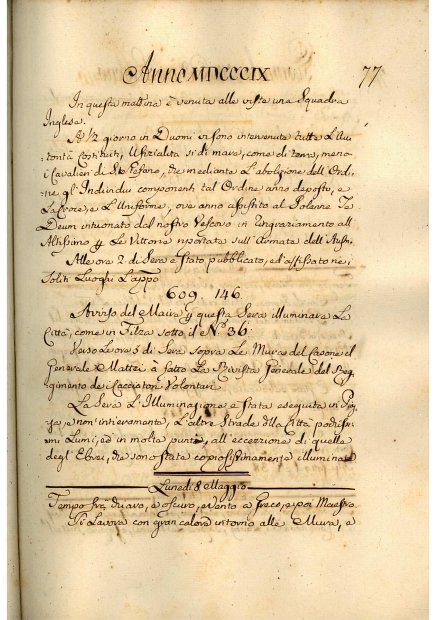 Anno MDCCCIX
77
In questa mattina è venuta alle viste una Squadra
Inglese.
A ½ giorno in Duomi si sono intervenute tutte L'Au-
torità Costituite, Ufizialità sì di mare, come di terra, meno
i Cavalieri di Sto. Stefano, che mediante L'abolizione dell'Ordi-
ne gl'Individui componenti tal Ordine anno deposto, e
La Croce, e L'Uniforme, ove anno assistito al Solenne Te
Deum intuonato dal nostro Vescovo in ringraziamento all'
Altissimo Le Vittorie riportate sull'Armata dell'Austr.
Alle ore 2 di Sera è stato pubblicato, ed affisso ne'
Soliti Luoghi L'appo
609 146
Avviso del Maire questa Sera illuminare La
Città, come in Filza sotto il No. 36.
Verso Le ore 5 di Sera Sopra Le Mura del Casone il
Generale Mattei à fatto La Rivista Generale del Reg-
gimento de' Cacciatori Volontari
La Sera L'Illuminazione è stata eseguita in
e non intieramente, L'altre Strade della Città pochissi-
mi Lumi, ed in molta punti, all'eccezzione di quelle
degl'Ebrei, che sono state copiosissimamente illuminate
Lunedì 8 Maggio
Tempo fra chiaro, e oscuro, e Vento a Greco, e poi Maestro
Si Lavora con gran calore intorno alle Mura, e